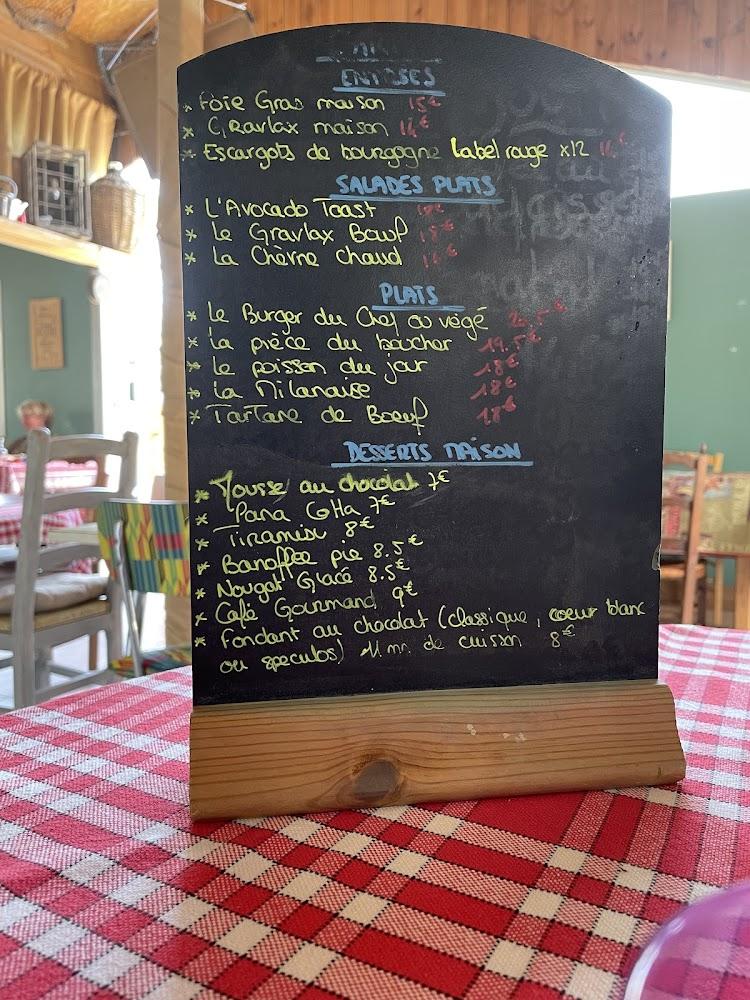 ENTRÉES
* Foie Gras maison 15€
* Gravlax maison 14€
* Escargots de bourgogne Label rouge x12
SALADES PLATS
* L'Avocado Toast
* Le Gravlax Bowl
* La Chèvre chaud
PLATS
* Le Burger du Chef ou végé
* La pièce du boucher 19.5€
* Le poisson du jour 18€
* La Milanaise 18€
* Tartare de Boeuf 18€
DESSERTS MAISON
* Mousse au chocolat 7€
* Pana Cotta 7€
* Tiramisu 8€
* Banoffee pie 8.5€
* Nougat Glacé 8.5€
* Café Gourmand 9€
* Fondant au chocolat (classique, coeur blanc
ou speculos) 11 mn. de cuisson 8€